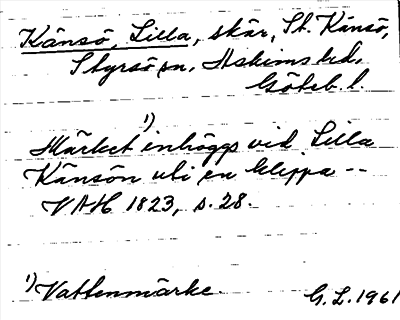 Känsö, Lilla, skär, St. Känsö,
Styrsö sn, Askims hd,
Göteb. l.
Märket ¹) inhöggs vid Lilla
Känsön uti en klippa --
VAH 1823, s. 28.
¹) Vattenmärke.
G. L. 1961